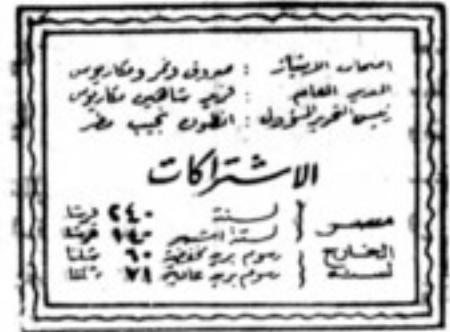 اصحاب الامتياز : صروف ونمر ومكاريوس
المدير العام : فريد شاهين مكاريوس
رئيس التحرير المسؤول : انطون نجيب مطر
الاشتراكات
مصر لسنة ٢٤٠ قرشا
لستة اشهر ١٤٠ قرشا
الخارج رسوم بريد مخفضة ٦٠ شلنا
لسنة رسوم بريد عادية ٧٨ شلنا